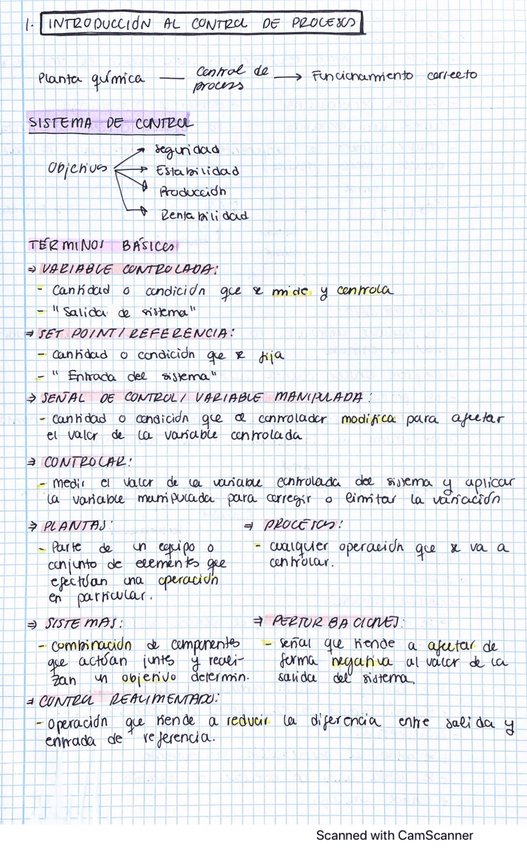 1. INTRODUCCIÓN AL CONTROL DE PROCESOS
Planta química — control de proceso → Funcionamiento correcto
SISTEMA DE CONTROL
Objetivos
→ seguridad
→ Estabilidad
→ Producción
→ Rentabilidad
TÉRMINOS BÁSICOS
⇒ VARIABLE CONTROLADA:
- Cantidad o condición que se mide y controla
- "Salida de sistema"
⇒ SET POINT / REFERENCIA:
- cantidad o condición que se fija
- " Entrada del sistema"
⇒ SEÑAL DE CONTROL / VARIABLE MANIPULADA:
- cantidad o condición que el controlador modifica para afectar
el valor de la variable controlada
⇒ CONTROLAR:
- medir el valor de la variable controlada del sistema y aplicar
la variable manipulada para corregir o limitar la variación
⇒ PLANTAS:
- Parte de un equipo o
conjunto de elementos que
efectúan una operación
en particular.
⇒ PROCESOS:
- cualquier operación que se va a
controlar.
⇒ SISTEMAS:
- combinación de componentes
que actúan juntos y reali-
zan un objetivo determin.
⇒ PERTURBACIONES:
- señal que tiende a afectar de
forma negativa al valor de la
salida del sistema.
⇒ CONTROL REALIMENTADO:
- operación que tiende a reducir la diferencia entre salida y
entrada de referencia.
Scanned with CamScanner